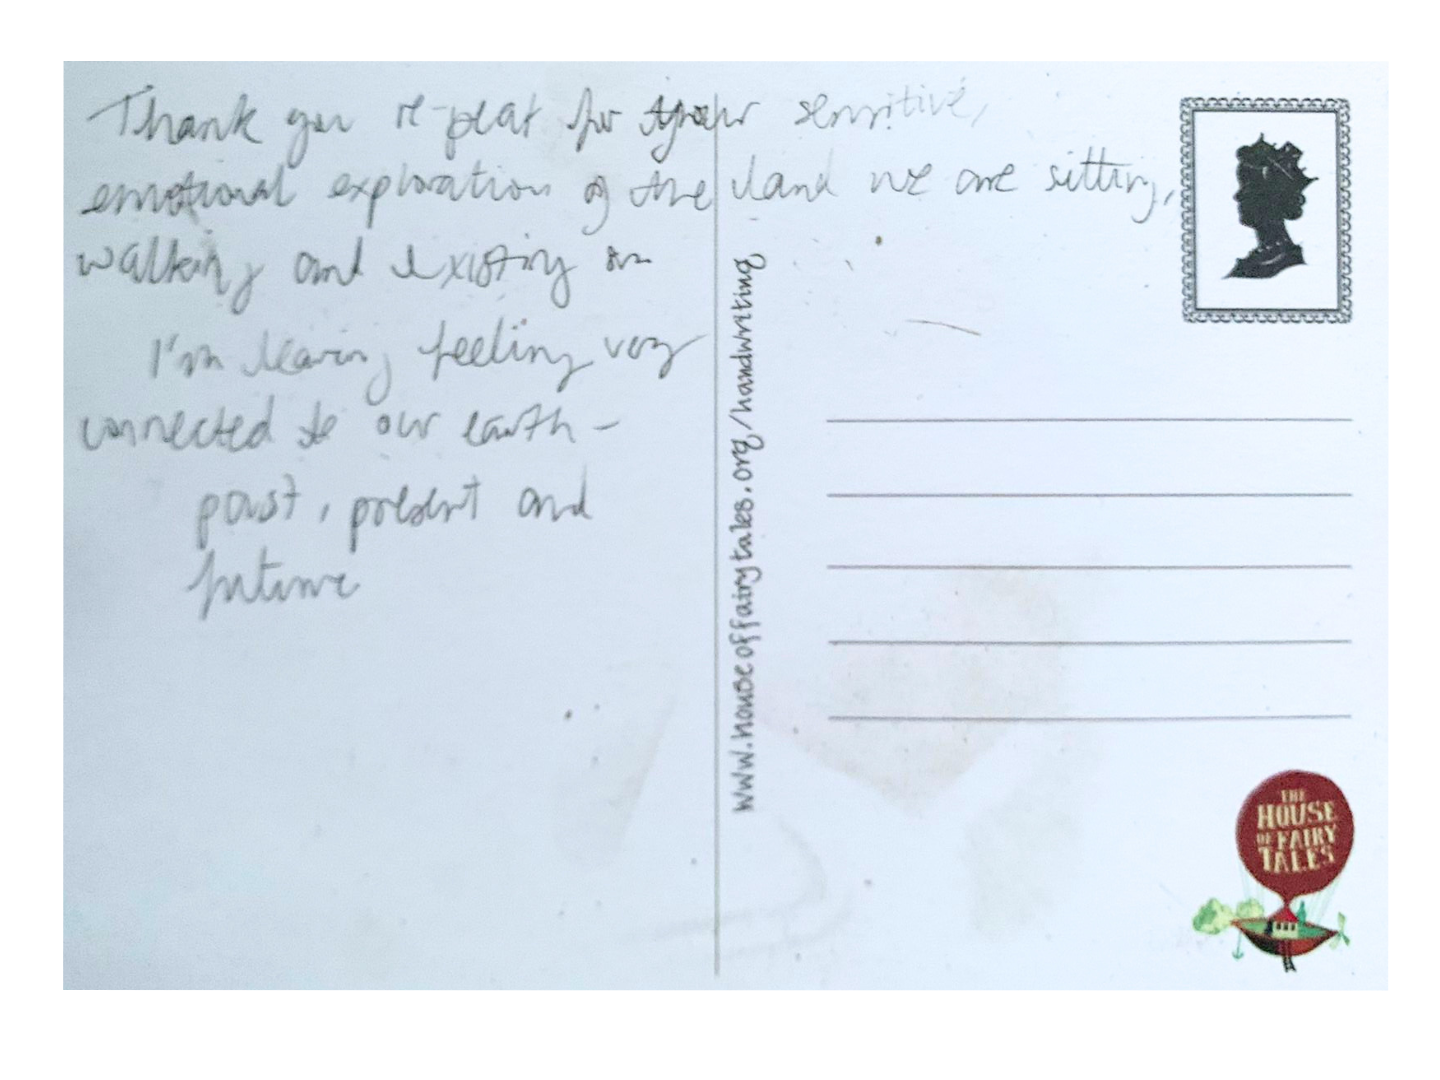 Thank you re-peat for your sensitive,
emotional exploration of the land we are sitting,
walking and existing on
I'm leaving feeling very
connected to our earth -
past, present and
future
www.houseoffairytales.org/handwriting
THE
HOUSE
OF FAIRY
TALES